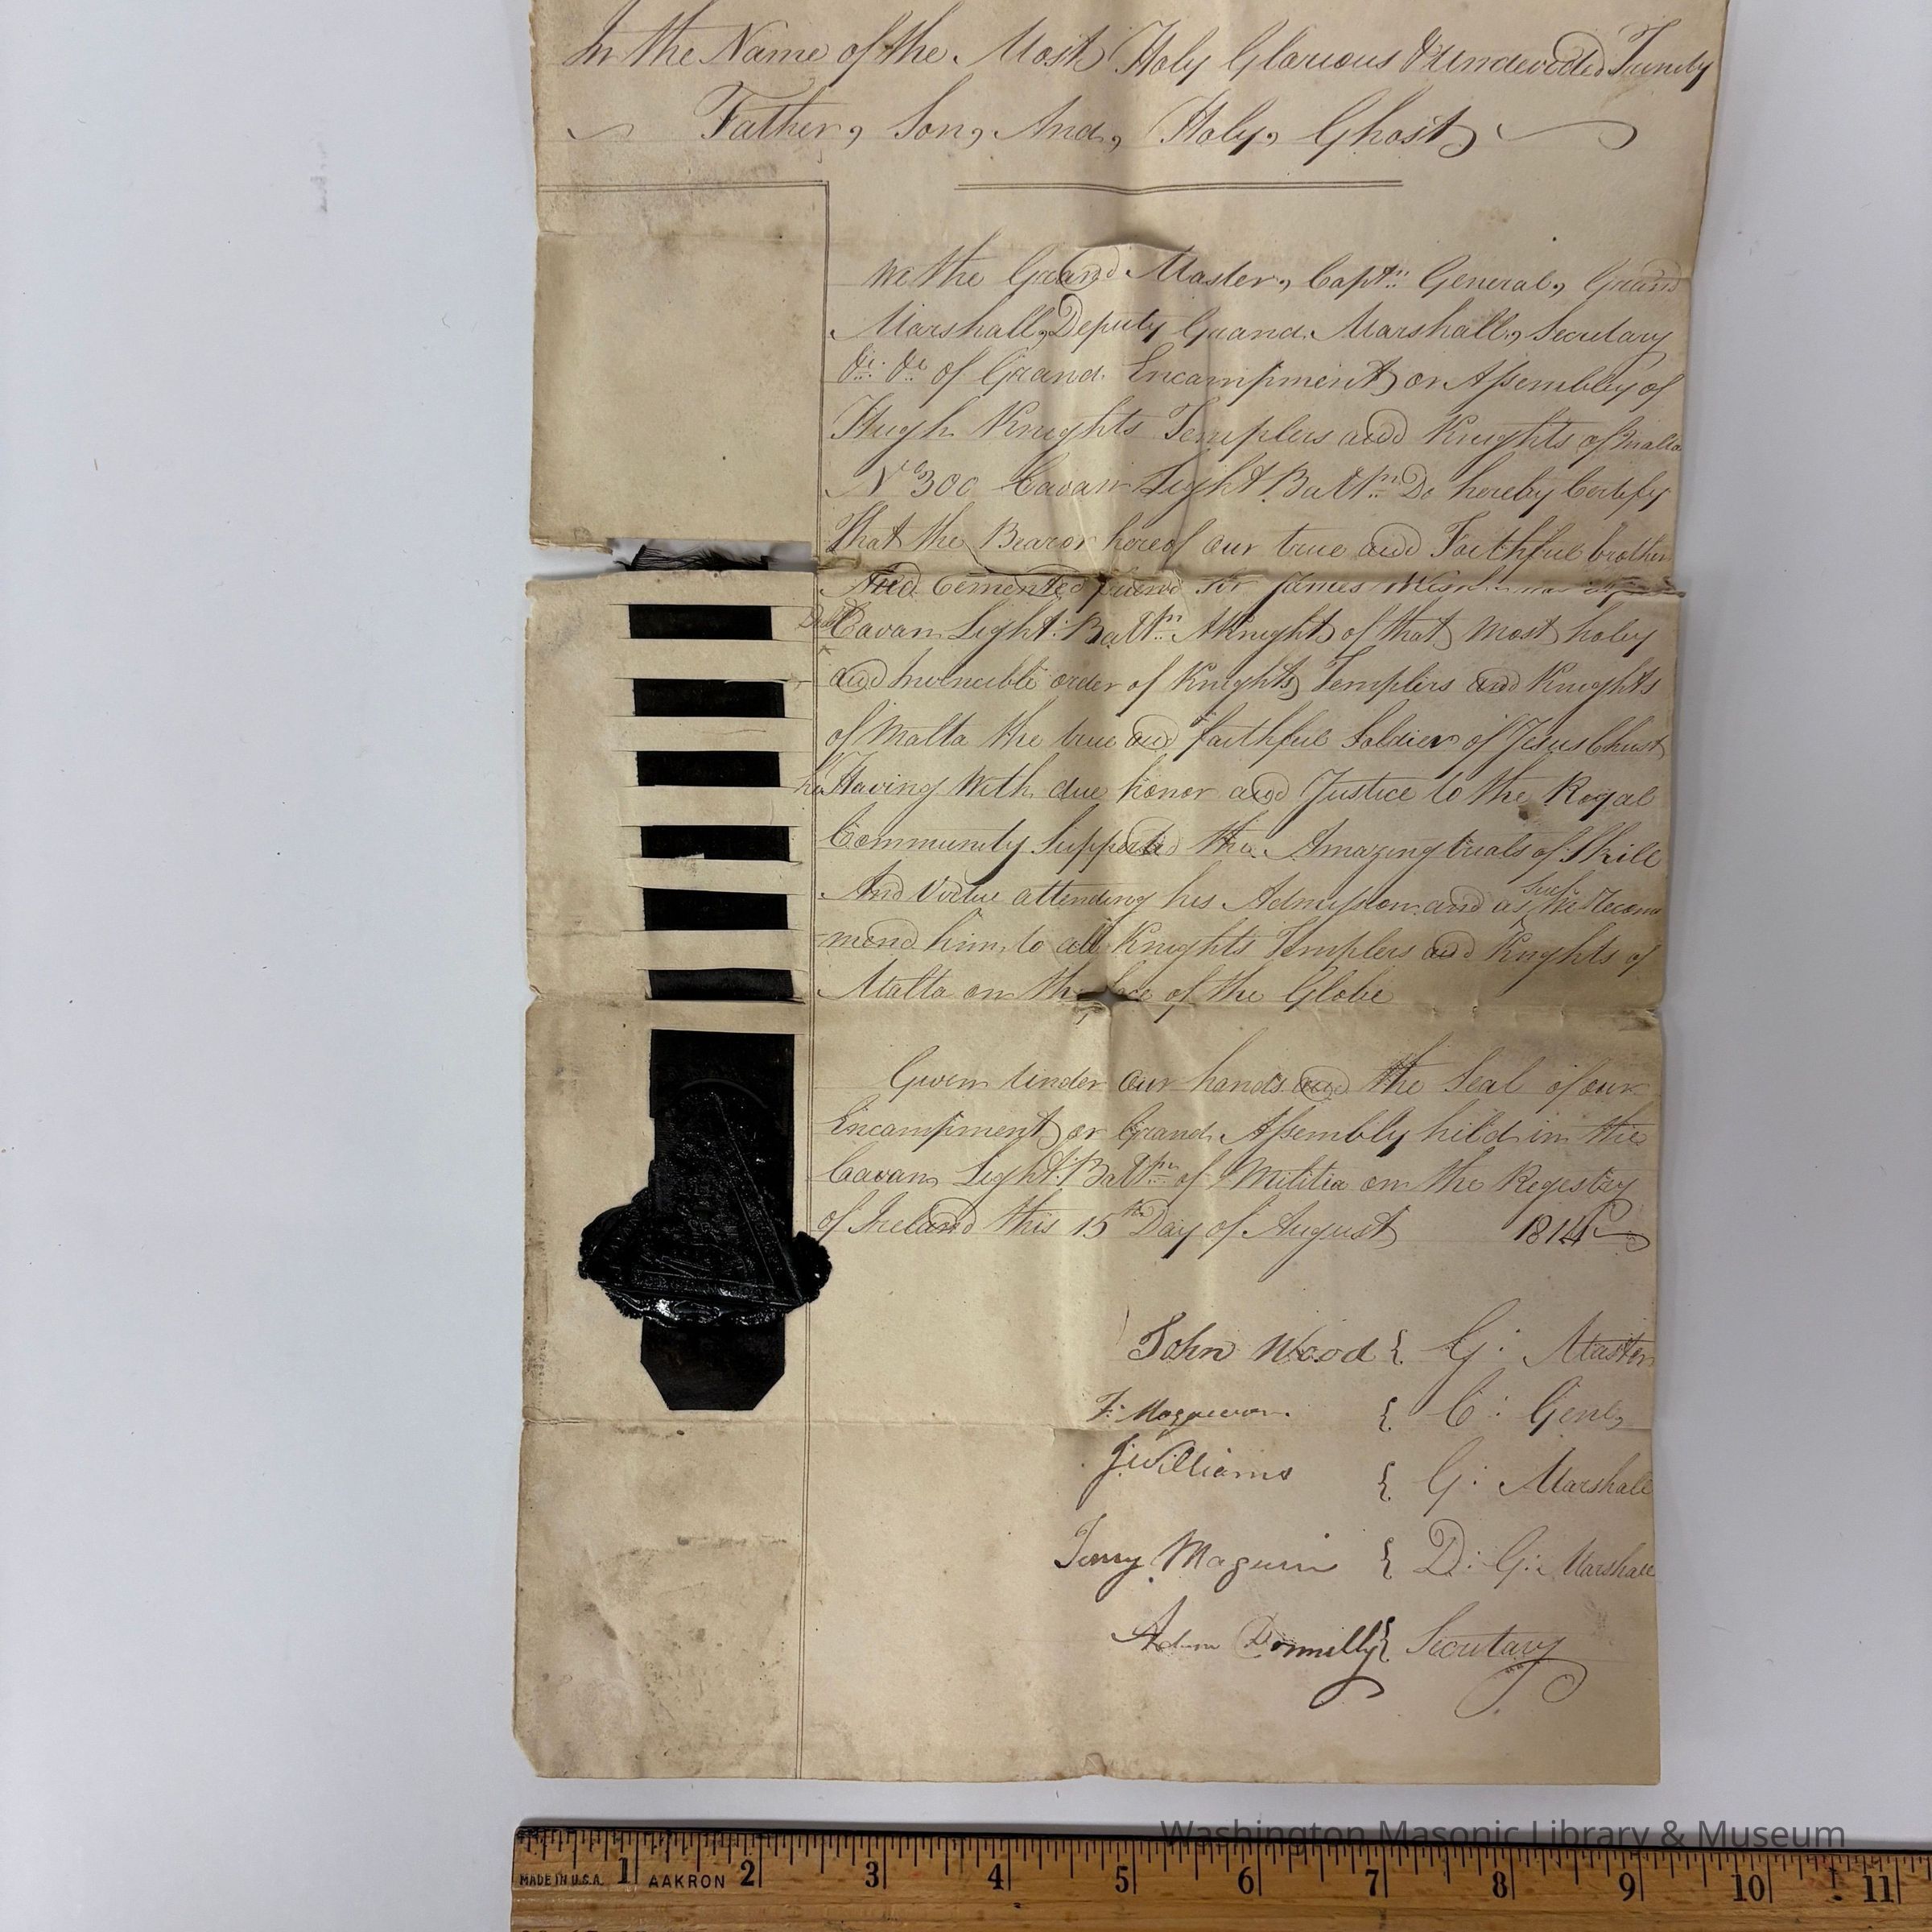 In the Name of the Most Holy Glorious & Undevided Trinity
Father, Son, And, Holy, Ghost
We the Grand Master, Captn General, Grand
Marshall, Deputy Grand Marshall, Secretary
&c. &c of Grand Encampment or Assembley of
Hugh Knights Templers and Knights of Malta
No 300 Cavan Light Battn Do hereby Certify
That the Bearor hereof our true and Faithfull brother
And Cemented friend Sir James
Cavan Light Battn A Knight of that most holey
and Invincible order of Knights Templers and Knights
of Malta the true and faithfull Soldier of Jesus Christ
Having With due honor and Justice to the Royal
Community Supported the Amazing trials of Skill
And Virtue attending his Admission and as such We Recom
mend him to all Knights Templers and Knights of
Malta on the face of the Globe
Given Under Our hands and the Seal of our
Encampment or Grand Assembly held in the
Cavan Light Battn of Militia on the Registry
of Ireland this 15th Day of August 1814
John Wood { G: Master
{ C: Genl,
J Williams { G: Marshall
Terry Maguire { D: G: Marshall
Adam Donnilly { Secretary
Washington Masonic Library & Museum
MADE IN U.S.A. 1 AAKRON 2 3 4 5 6 7 8 9 10 11